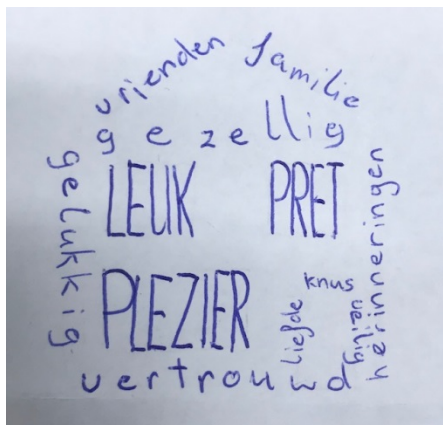 vrienden familie
gezellig
gelukkig
LEUK PRET
PLEZIER
liefde
knus
herinneringen
vertrouwd